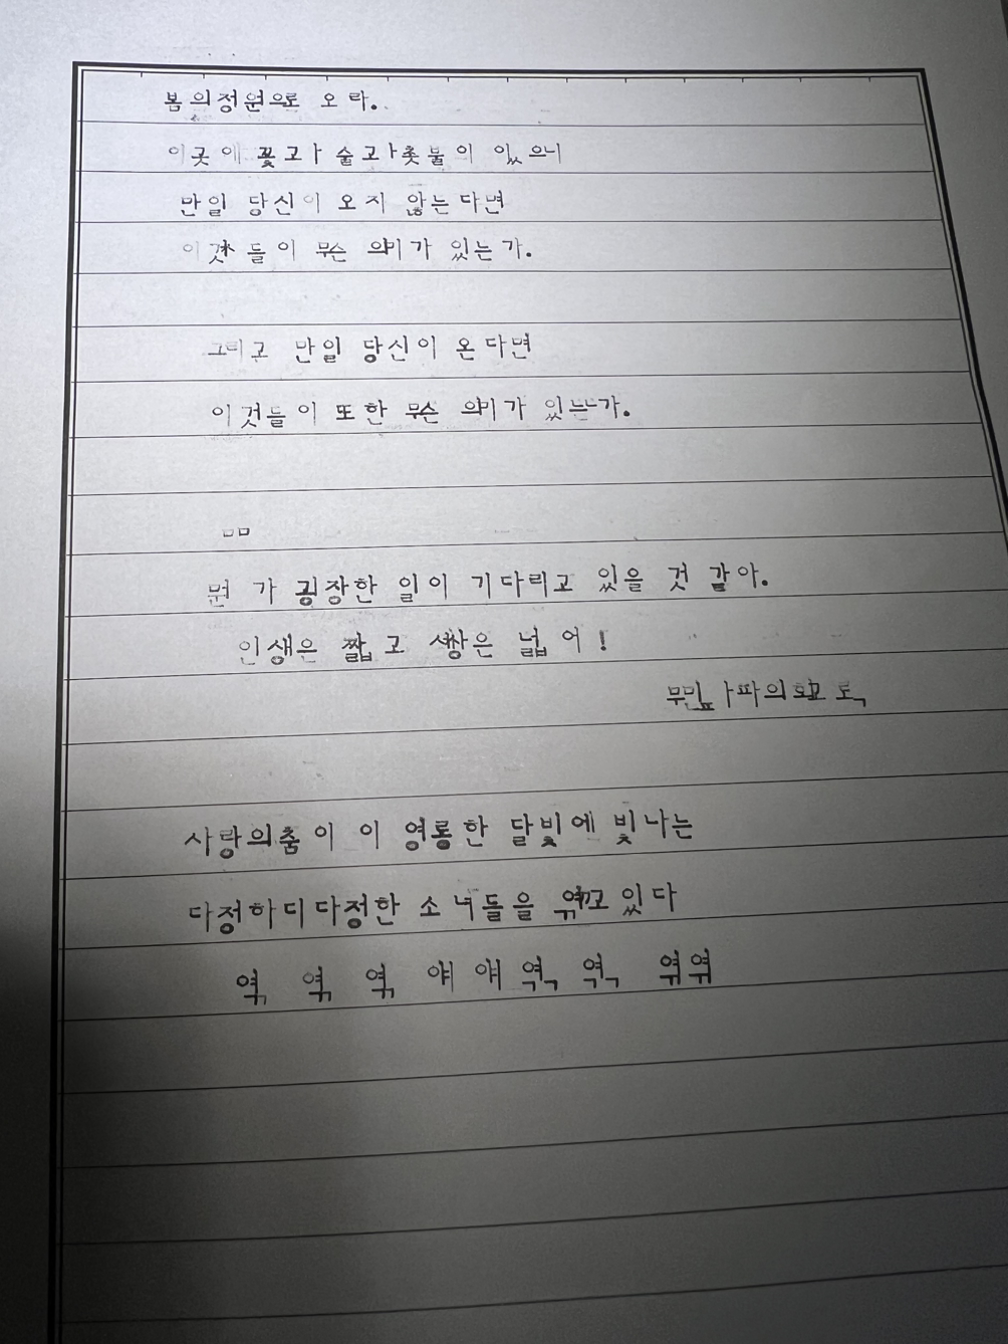 봄의정원으로 오라.
이곳에 꽃과 술과촛불이 있으니
만일 당신이 오지 않는다면
이것들이 무슨 의미가 있는가.
그리고 만일 당신이 온다면
이것들이 또한 무슨 의미가 있는가.
ㅁㅁ
뭔가 굉장한 일이 기다리고 있을 것 같아.
인생은 짧고 세상은 넓어!
무민파파의회고록
사랑의춤이 이 영롱한 달빛에 빛나는
다정하디다정한 소녀들을 엮고 있다
엮 엮 엮 얘 얘 엮 엮 엮엮